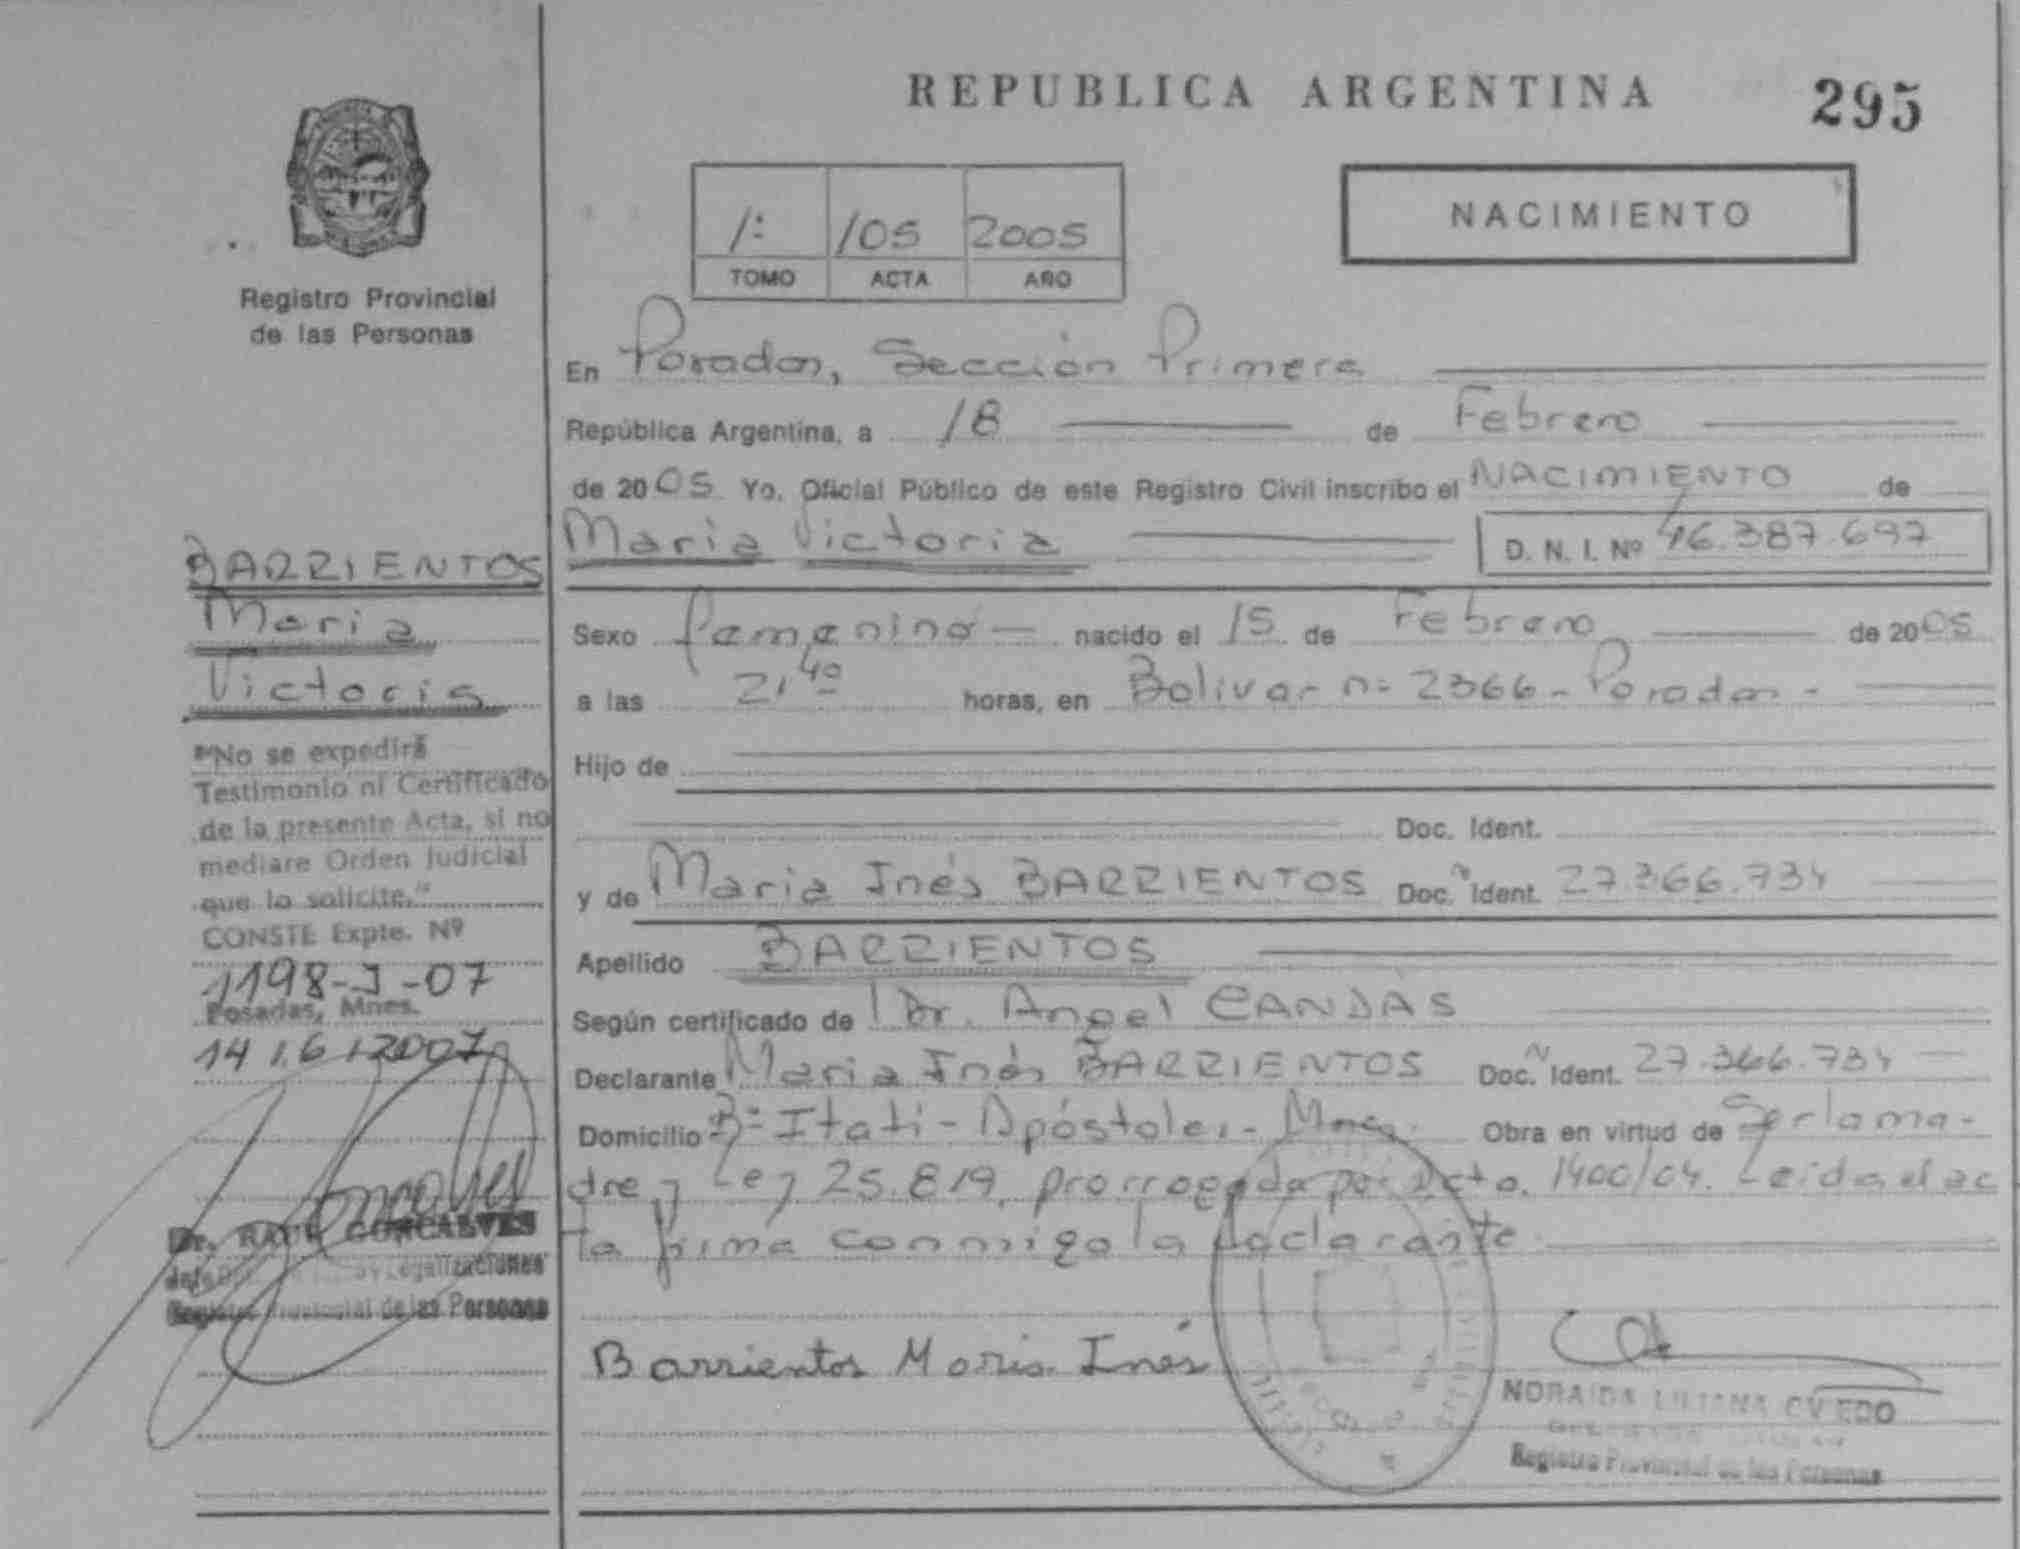 REPUBLICA ARGENTINA
295
NACIMIENTO
1º 105 2005
TOMO ACTA AÑO
Registro Provincial
de las Personas
En Posadas, Sección Primera
República Argentina, a 18 de Febrero
de 2005 Yo, Oficial Público de este Registro Civil inscribo el NACIMIENTO de
Maria Victoria D. N. I. Nº 46.387.697
Sexo femenino nacido el 15 de Febrero de 2005
a las 21 40 horas, en Bolivar nº 2366 - Posadas -
Hijo de
Doc. Ident.
y de Maria Inés BARRIENTOS Doc. Ident. 27.366.734
Apellido BARRIENTOS
Según certificado de Dr. Angel CANDAS
Declarante Maria Inés BARRIENTOS Doc. Ident. 27.366.734
Domicilio Bº Itatí - Apóstoles - Mnes. Obra en virtud de Ser la ma-
dre y Ley 25.819, prorrogada por Dcto. 1400/04. Leida el ac
ta firma conmigo la declarante.
Barrientos Maria Inés
NORAIDA LILIANA OVIEDO
Registro Provincial de las Personas
BARRIENTOS
Maria
Victoria
"No se expedirá
Testimonio ni Certificado
de la presente Acta, si no
mediare Orden Judicial
que lo solicite."
CONSTE Expte. Nº
1198-J-07
Posadas, Mnes.
14 / 6 / 2007
Dr. RAUL GONCALVES
Legalizaciones
Registro Provincial de las Personas